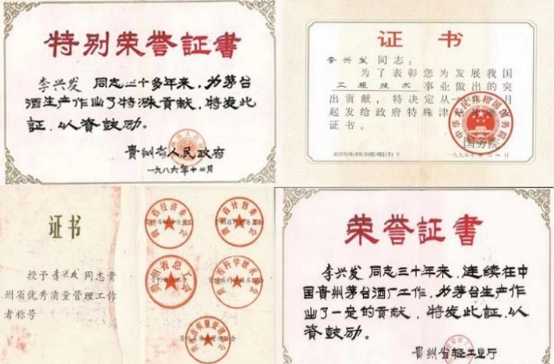 特别荣誉証書
李兴发 同志三十多年来，为茅台
酒生产作出了特殊贡献，特发此
証，以资鼓励。
贵州省人民政府
一九八六年十二月
证书
李兴发同志：
为了表彰您为发展我国
工程技术事业做出的突
出贡献，特决定从
起发给政府特殊津
证书。
国务院
证书
授予李兴发同志贵
州省优秀质量管理工作
者称号
荣誉証書
李兴发 同志三十年来，连续在中
国贵州茅台酒厂工作，为茅台生产作
出了一定的贡献，特发此証，以
资鼓励。
贵州省轻工业厅